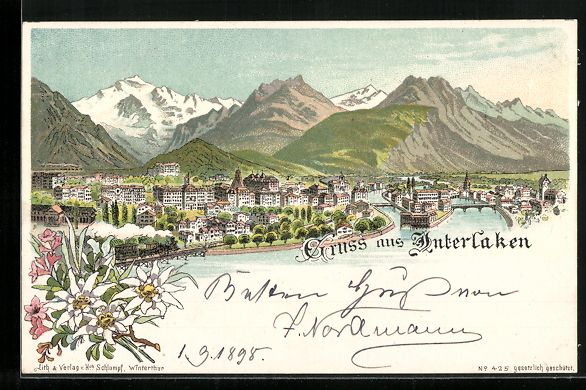 Gruss aus Interlaken
Besten Gruß von
F. Nordmann
1.9.1898.
Lith. & Verlag v. Hch. Schlumpf, Winterthur
No 425 gesetzlich geschützt.